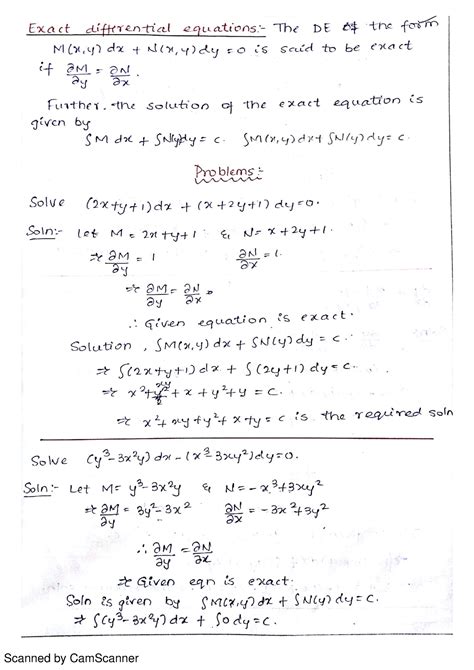 Exact differential equations:- The DE of the form
M(x,y) dx + N(x,y) dy = 0 is said to be exact
if ∂M/∂y = ∂N/∂x.
Further, the solution of the exact equation is
given by
∫M dx + ∫N(y)dy = c. ∫M(x,y)dx + ∫N(y)dy = c.
Problems:-
Solve (2x+y+1)dx + (x+2y+1)dy=0.
Soln:- Let M = 2x+y+1 & N = x+2y+1.
⇒ ∂M/∂y = 1 ∂N/∂x = 1.
⇒ ∂M/∂y = ∂N/∂x
∴ Given equation is exact.
Solution, ∫M(x,y)dx + ∫N(y)dy = c.
⇒ ∫(2x+y+1)dx + ∫(2y+1)dy = c.
⇒ x²+xy+x+y²+y = c.
⇒ x²+xy+y²+x+y = c is the required soln
Solve (y³-3x²y)dx-(x³-3xy²)dy=0.
Soln:- Let M = y³-3x²y & N = -x³+3xy²
⇒ ∂M/∂y = 3y²-3x² ∂N/∂x = -3x²+3y²
∴ ∂M/∂y = ∂N/∂x
⇒ Given eqn is exact.
Soln is given by ∫M(x,y)dx + ∫N(y)dy = c.
⇒ ∫(y³-3x²y)dx + ∫0dy = c.
Scanned by CamScanner